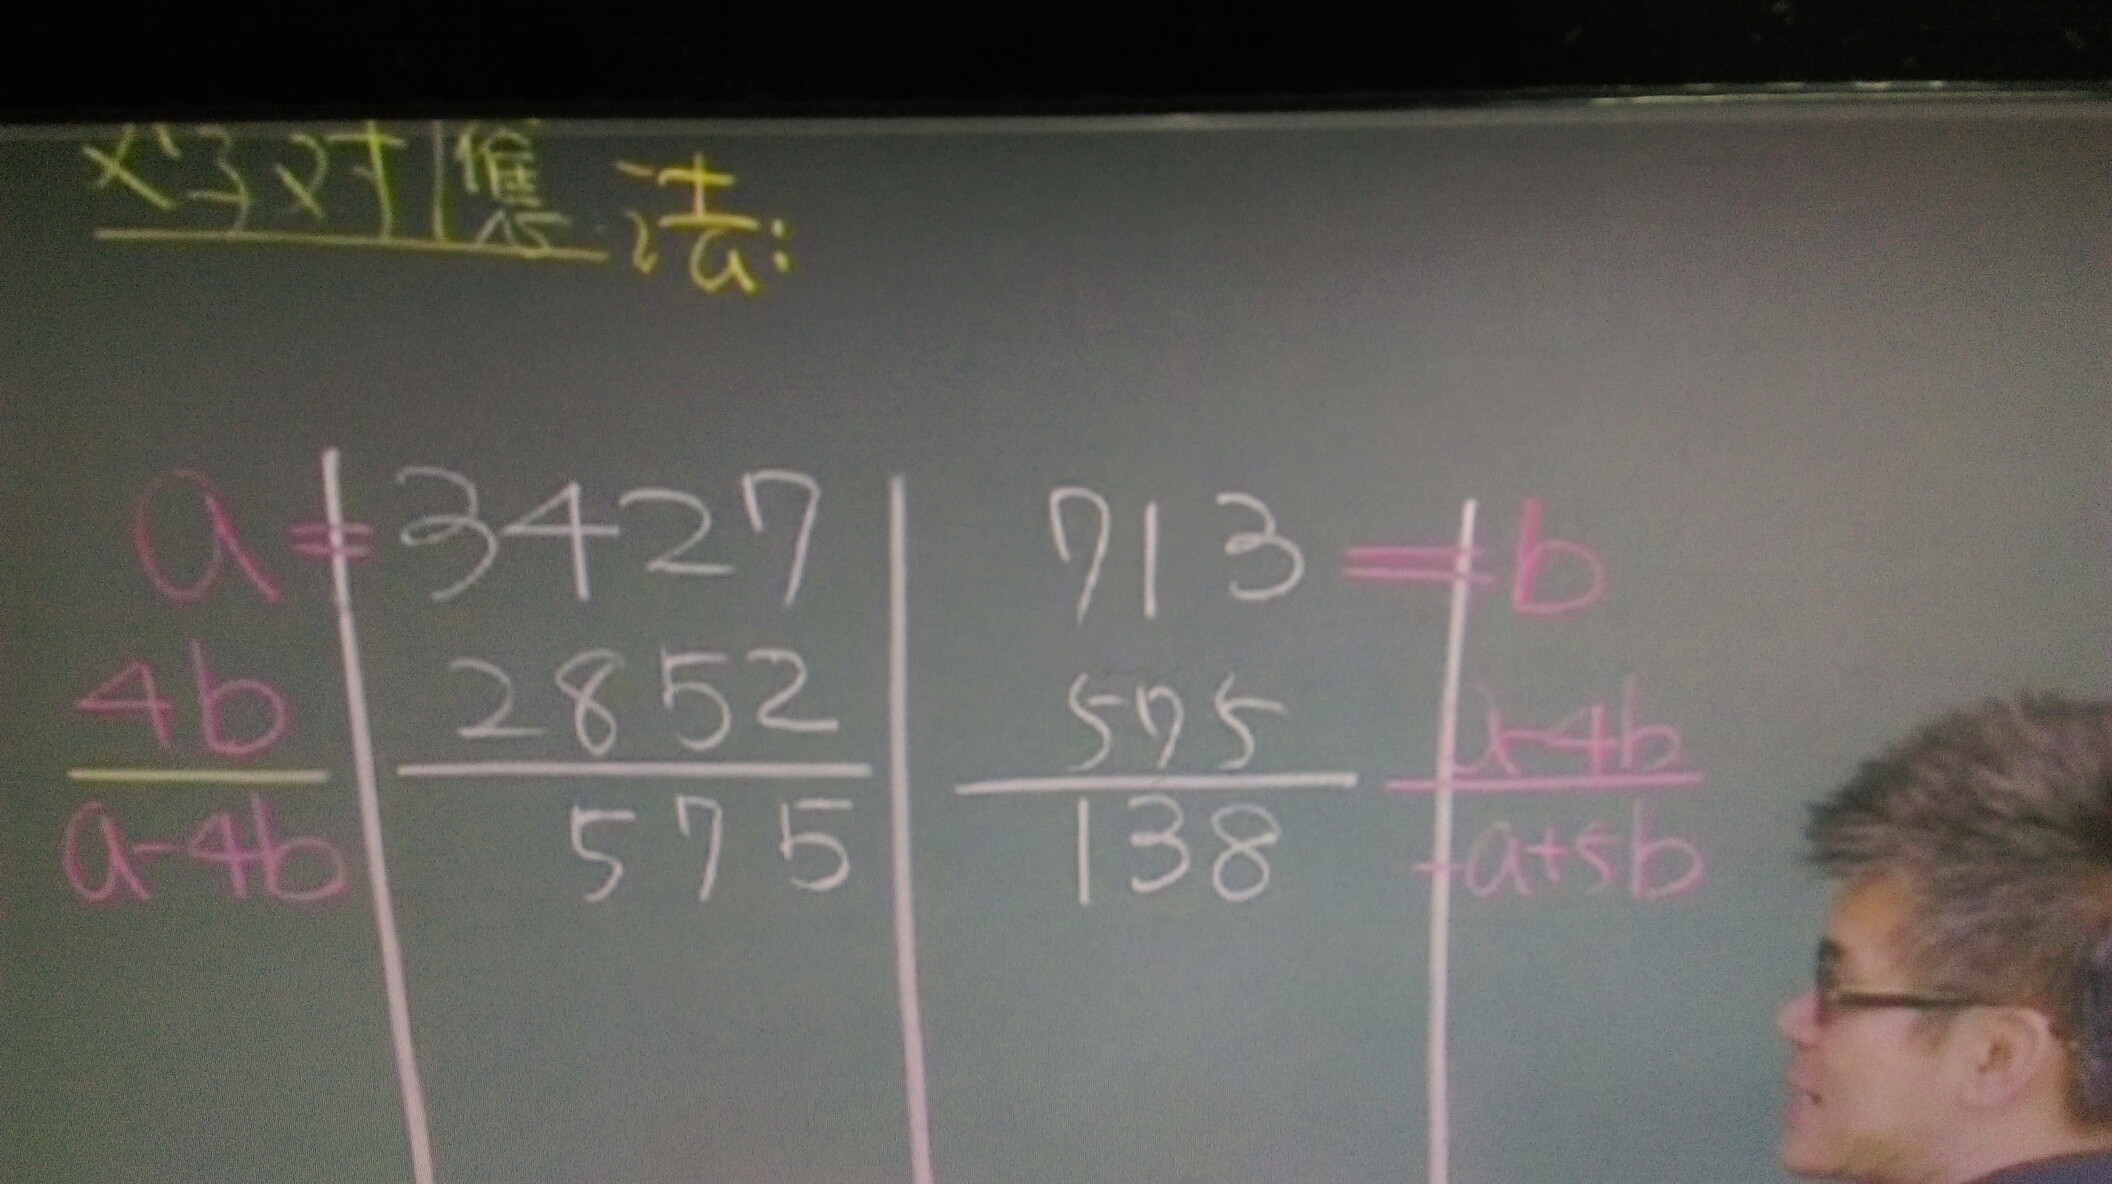 父子对應法:
a = 3427 713 = b
4b 2852 575 a-4b
a-4b 575 138 -a+5b